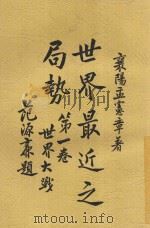 襄陽孟憲章著
世界最近之
局勢 第一卷
世界大戰
范源廉題
www.duxiu.com